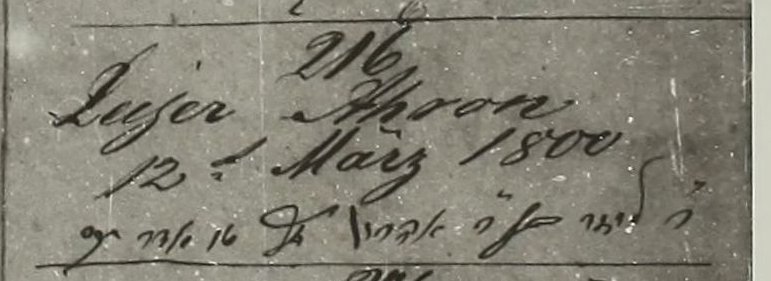 216
Leiser Ahron
12t März 1800
ר' ליזר אהרן טו אדר